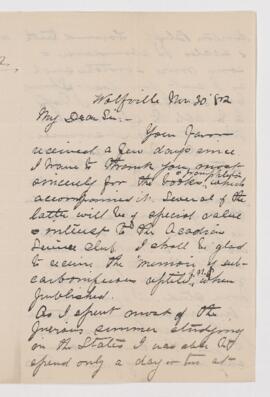 2,
Wolfville Nov. 30 '82
My Dear Sir:-
Your favor
received a few days since
I want to thank you most
sincerely for the books & pamphlets which
accompanied it. Several of the
latter will be of special value
& interest to the Acadian
Science Club. I shall be glad
to receive the "memoir of sub-
carboniferous reptiles, when
published.
As I spent most of the
previous summer studying
in the States I was able to
spend only a day or two at-